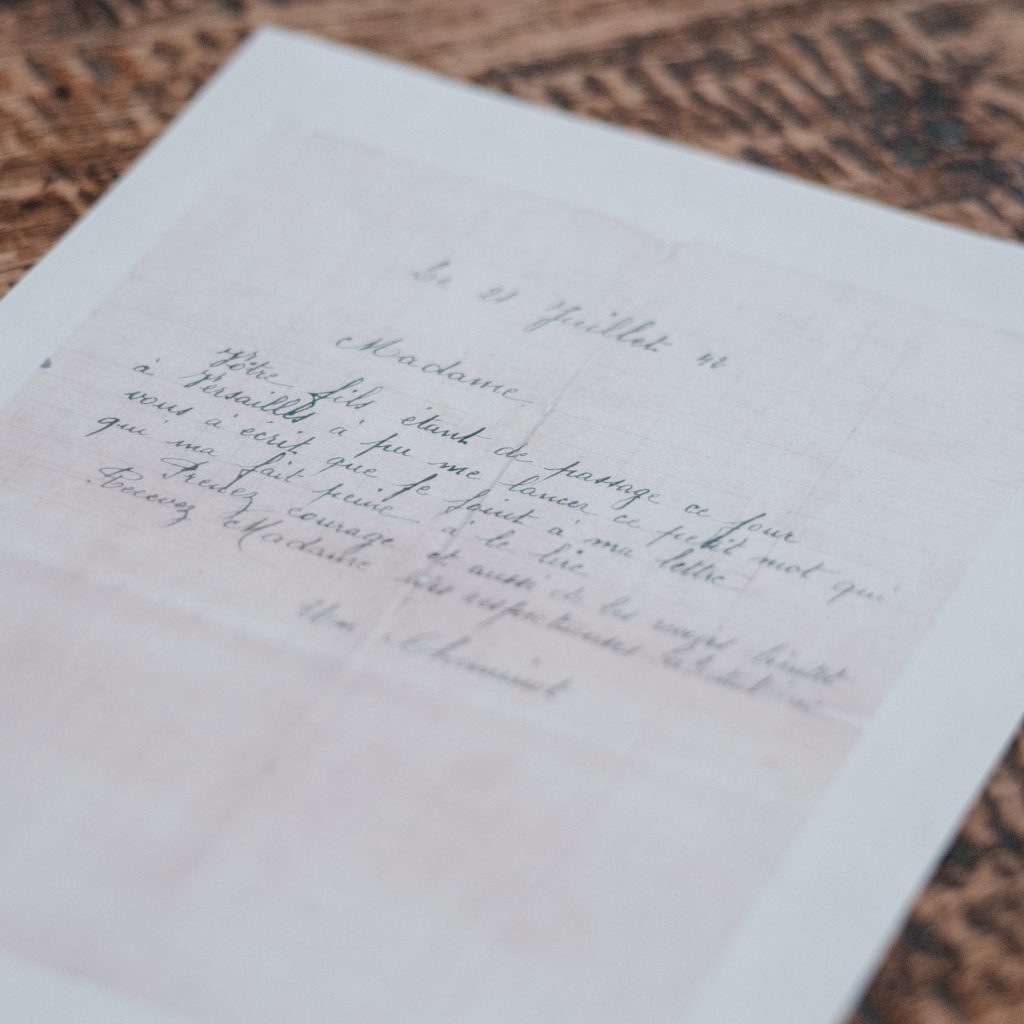 Le 21 Juillet 42
Madame
Vôtre fils étant de passage ce jour
à Versailles à pu me lancer ce petit mot qui
vous à écrit que je joint à ma lettre
qui ma fait peine à le lire
Prenez courage et aussi
Recevez Madame mes respectueuses
Un Cheminot